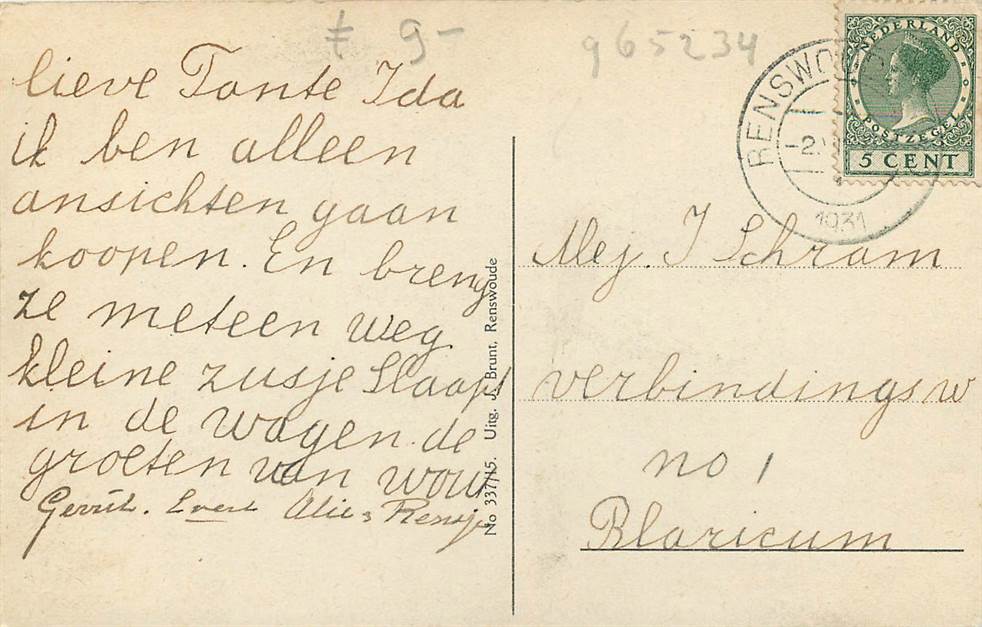 9-
965234
lieve Tante Ida
ik ben alleen
ansichten gaan
koopen. En breng
ze meteen weg
kleine zusje Slaapt
in de wagen. de
groeten van wout
Gerrit. Evert Alie
No 337/15. Uitg. J. Brunt, Renswoude
RENSWO
-2.
1931
NEDERLAND
POSTZEGEL
5 CENT
Mej. I Schram
verbindingsw
no 1
Blaricum